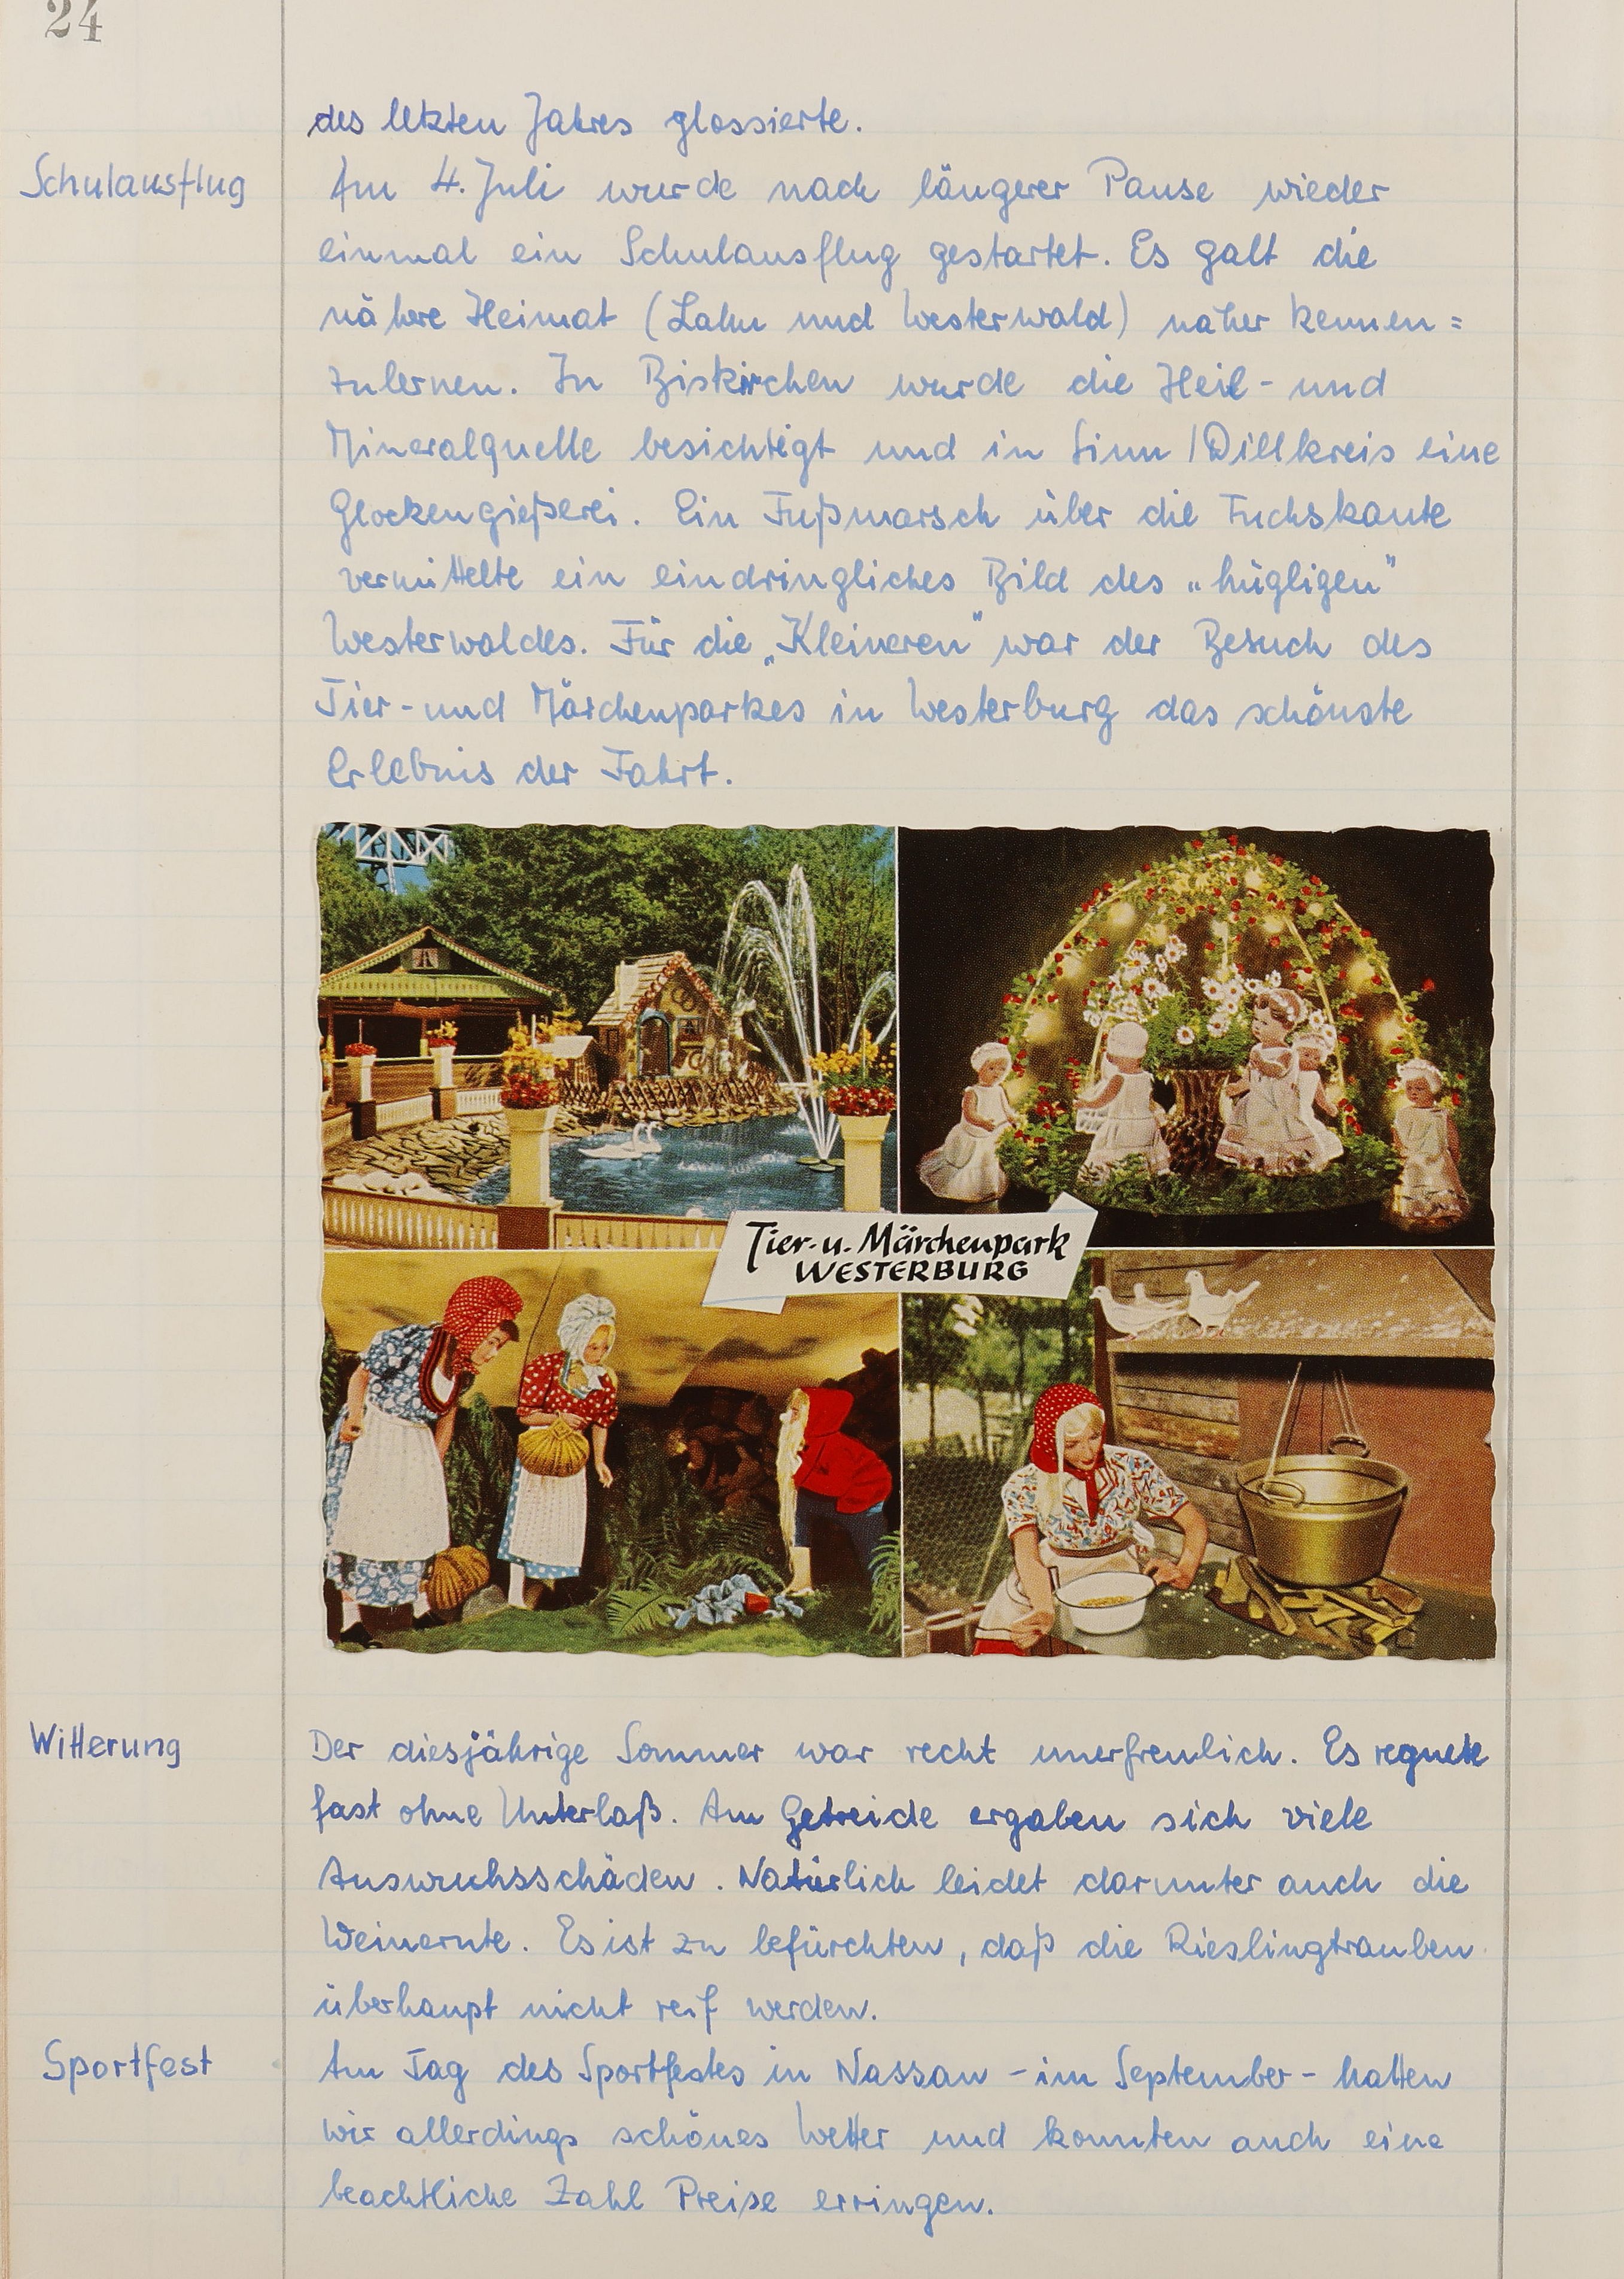 24
des letzten Jahres glossierte.
Schulausflug
Am 4. Juli wurde nach längerer Pause wieder
einmal ein Schulausflug gestartet. Es galt die
nähere Heimat (Lahn und Westerwald) näher kennen=
zulernen. In Biskirchen wurde die Heil- und
Mineralquelle besichtigt und in Sinn /Dillkreis eine
Glockengießerei. Ein Fußmarsch über die Fuchskaute
vermittelte ein eindringliches Bild des „hügligen"
Westerwaldes. Für die „Kleineren" war der Besuch des
Tier- und Märchenparkes in Westerburg das schönste
Erlebnis der Fahrt.
Tier- u. Märchenpark
WESTERBURG
Witterung
Der diesjährige Sommer war recht unerfreulich. Es regnete
fast ohne Unterlaß. Am Getreide ergaben sich viele
Auswuchsschäden. Natürlich leidet darunter auch die
Weinernte. Es ist zu befürchten, daß die Rieslingtrauben
überhaupt nicht reif werden.
Sportfest
Am Tag des Sportfestes in Nassau - im September - hatten
wir allerdings schönes Wetter und konnten auch eine
beachtliche Zahl Preise erringen.